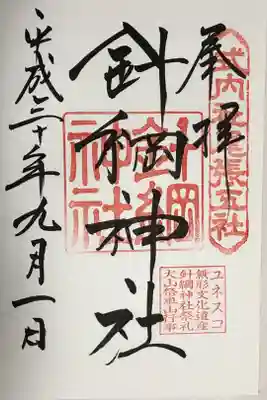 奉拝
針綱神社
平成三十年九月一日
針綱神社
ユネスコ
無形文化遺産
針綱神社祭礼
犬山祭車山行事